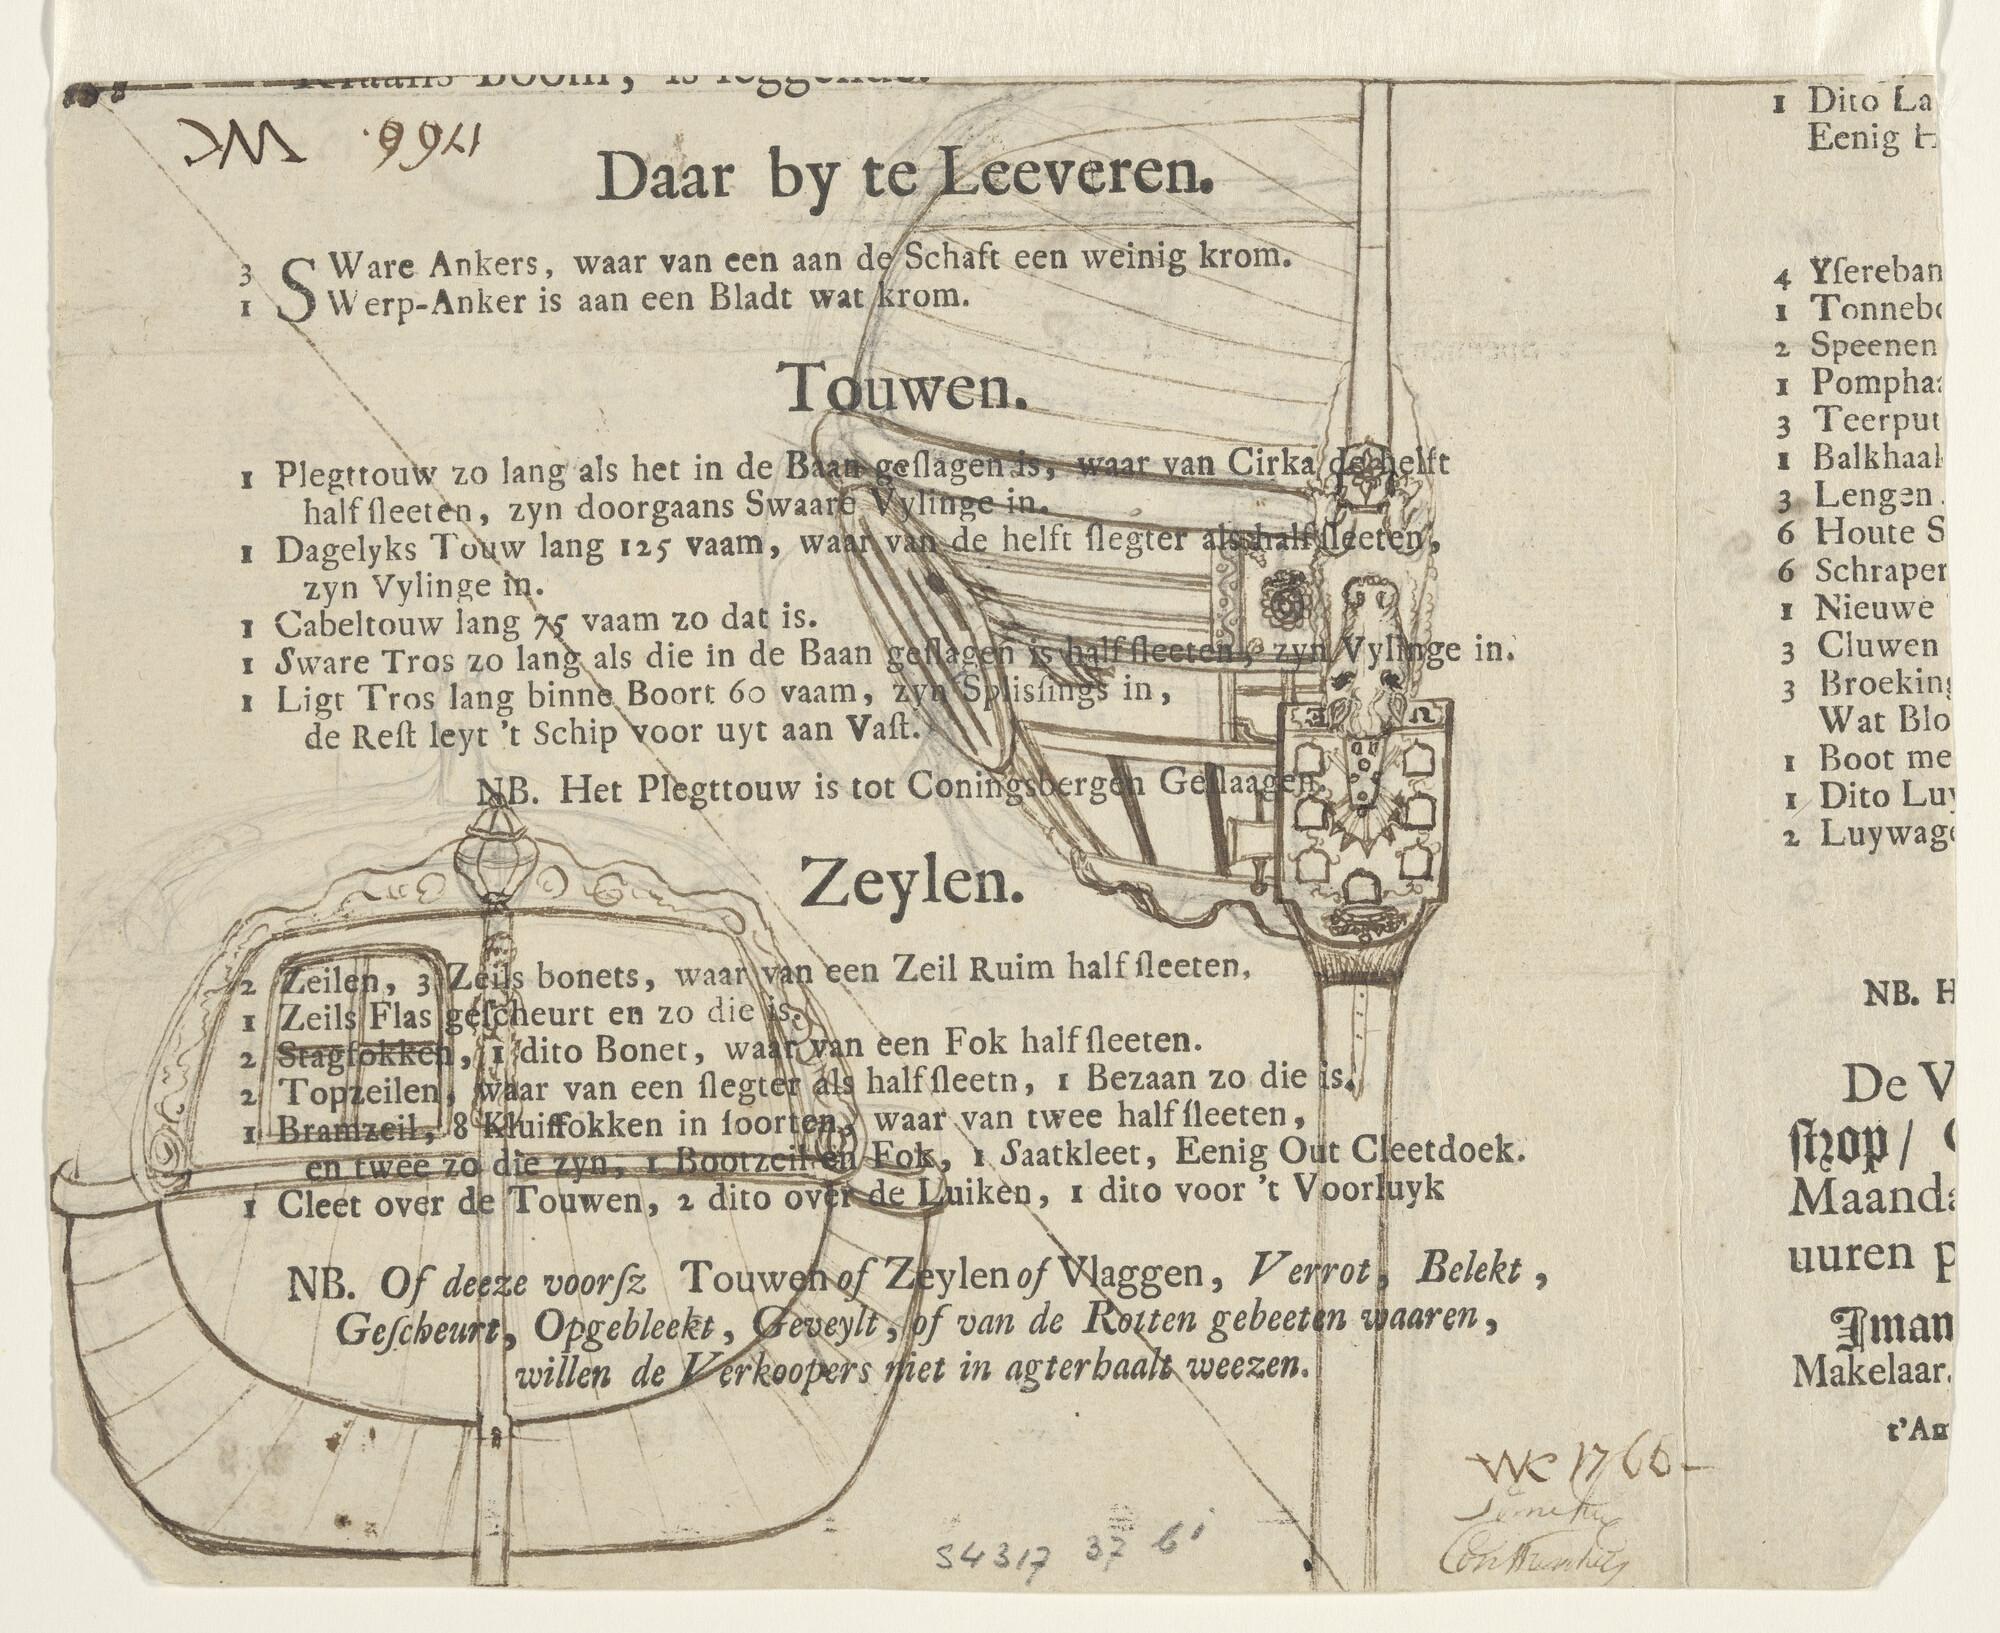 1766.
Daar by te Leeveren.
3 SWare Ankers, waar van een aan de Schaft een weinig krom.
1 Werp-Anker is aan een Bladt wat krom.
Touwen.
1 Plegttouw zo lang als het in de Baan geſlagen is, waar van Cirka de helft
half ſleeten, zyn doorgaans Swaare Vylinge in.
1 Dagelyks Touw lang 125 vaam, waar van de helft ſlegter als half ſleeten,
zyn Vylinge in.
1 Cabeltouw lang 75 vaam zo dat is.
1 Sware Tros zo lang als die in de Baan geſlagen is half ſleeten, zyn Vylinge in.
1 Ligt Tros lang binne Boort 60 vaam, zyn Splisſings in,
de Reſt leyt 't Schip voor uyt aan Vaſt.
NB. Het Plegttouw is tot Coningsbergen Geſlaagen.
Zeylen.
2 Zeilen, 3 Zeils bonets, waar van een Zeil Ruim half ſleeten,
1 Zeils Flas geſcheurt en zo die is.
2 Stagfokken, 1 dito Bonet, waar van een Fok half ſleeten.
2 Topzeilen, waar van een ſlegter als half ſleetn, 1 Bezaan zo die is.
1 Bramzeil, 8 Kluiffokken in ſoorten, waar van twee half ſleeten,
en twee zo die zyn, 1 Bootzeil en Fok, 1 Saatkleet, Eenig Out Cleetdoek.
1 Cleet over de Touwen, 2 dito over de Luiken, 1 dito voor 't Voorluyk
NB. Of deeze voorſz Touwen of Zeylen of Vlaggen, Verrot, Belekt,
Geſcheurt, Opgebleekt, Geveylt, of van de Rotten gebeeten waaren,
willen de Verkoopers niet in agterhaalt weezen.
WC 1766
S4317 37 61
1 Dito La
Eenig H
4 Yſereban
1 Tonnebo
2 Speenen
1 Pomphaa
3 Teerput
1 Balkhaak
3 Lengen
6 Houte S
6 Schraper
1 Nieuwe
3 Cluwen
3 Broeking
Wat Blo
1 Boot me
1 Dito Luy
2 Luywage
NB. H
De V
ſtrop/
Maanda
uuren p
Jman
Makelaar.
t'Am